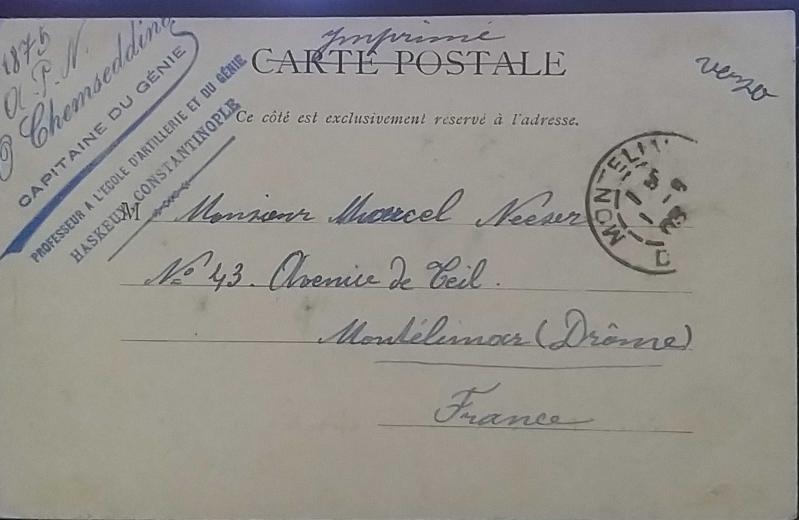 1875
A. P. N.
Chemseddin
CAPITAINE DU GÉNIE
PROFESSEUR A L'ECOLE D'ARTILLERIE ET DU GÉNIE
HASKEUI-CONSTANTINOPLE
Imprimé
CARTE POSTALE
verso
Ce côté est exclusivement réservé à l'adresse.
M Monsieur Marcel Neeser
No 43. Avenue de Teil.
Montélimar (Drôme)
France
MONTELIM